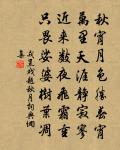 秋宵月色勝春宵
萬里天涯靜寂寥
近來數夜飛霜重
只畏娑婆樹葉凋
戎昱戲題秋月詩典網
集